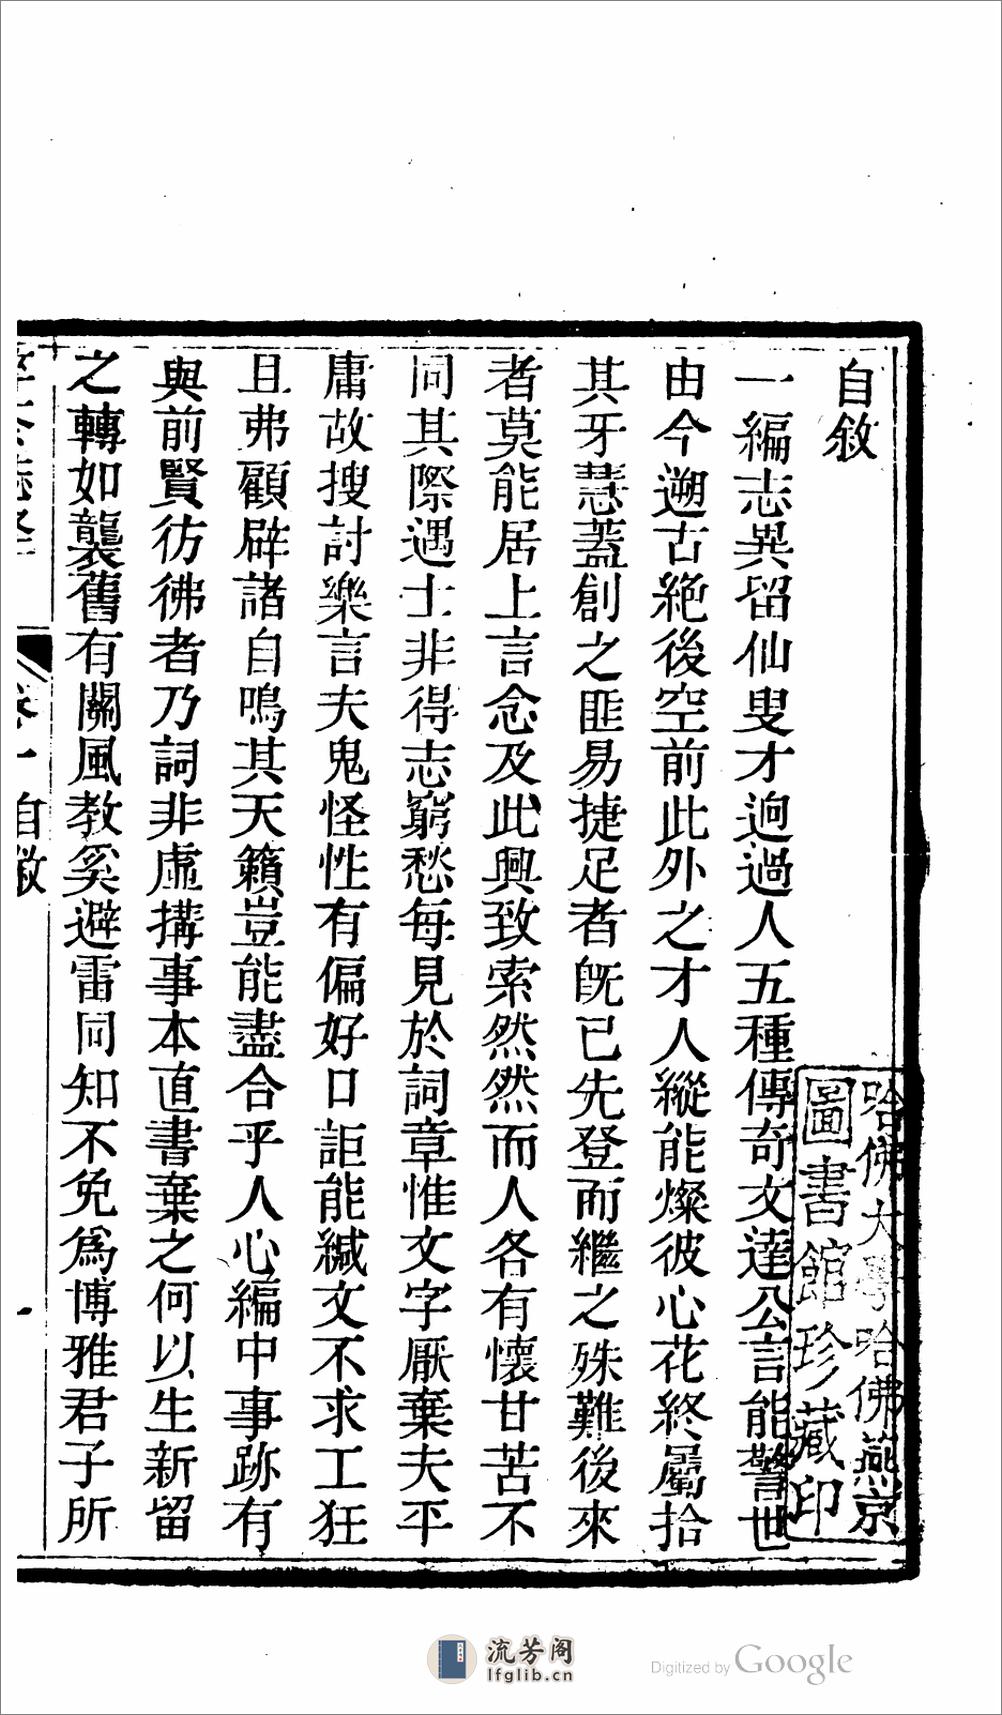 自敘
一編志異留仙叟才逈過人五種傳奇文達公言能警世
由今遡古絶後空前此外之才人縱能燦彼心花終屬拾
其牙慧蓋創之匪易捷足者旣已先登而繼之殊難後來
者莫能居上言念及此興致索然然而人各有懷甘苦不
同其際遇士非得志窮愁每見於詞章惟文字厭棄夫平
庸故搜討樂言夫鬼怪性有偏好口詎能緘文不求工狂
且弗顧辟諸自鳴其天籟豈能盡合乎人心編中事跡有
與前賢彷彿者乃詞非虛搆事本直書棄之何以生新留
之轉如襲舊有關風教奚避雷同知不免爲博雅君子所
卷一 自敘
一
哈佛大學哈佛燕京
圖書館珍藏印
流芳阁
lfglib.cn
Digitized by Google